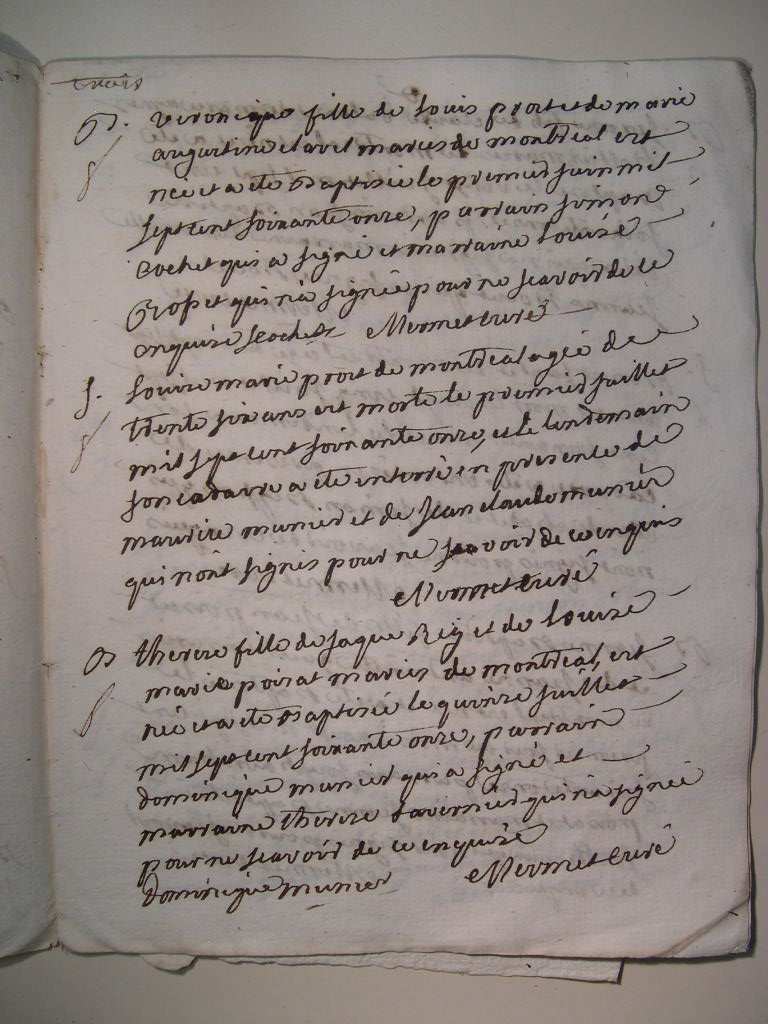 trois
B. veronique fille de louis prost et de marie
augustine clavel mariés de montreal est
née et a ete baptisée le premier juin mil
sept cent soixante onze, parrain simon
cochet qui a signé et marraine louise
Grospet qui n'a signée pour ne scavoir de ce
enquise s cochet Mermet curé
S. louise marie prost de montreal agée de
trente six ans est morte le premier juillet
mil sept cent soixante onze, et le lendemain
son cadavre a ete enterré en presence de
maurice munier et de jean claude munier
qui n'ont signés pour ne scavoir de ce enquis
Mermet curé
B therese fille de jaque Rey et de louise
marie poisat mariés de montreal, est
née et a ete baptisée le quinze juillet
mil sept cent soixante onze, parrain
dominique munier qui a signé et
marraine therese tavernier qui n'a signée
pour ne scavoir de ce enquise
dominique munier Mermet curé